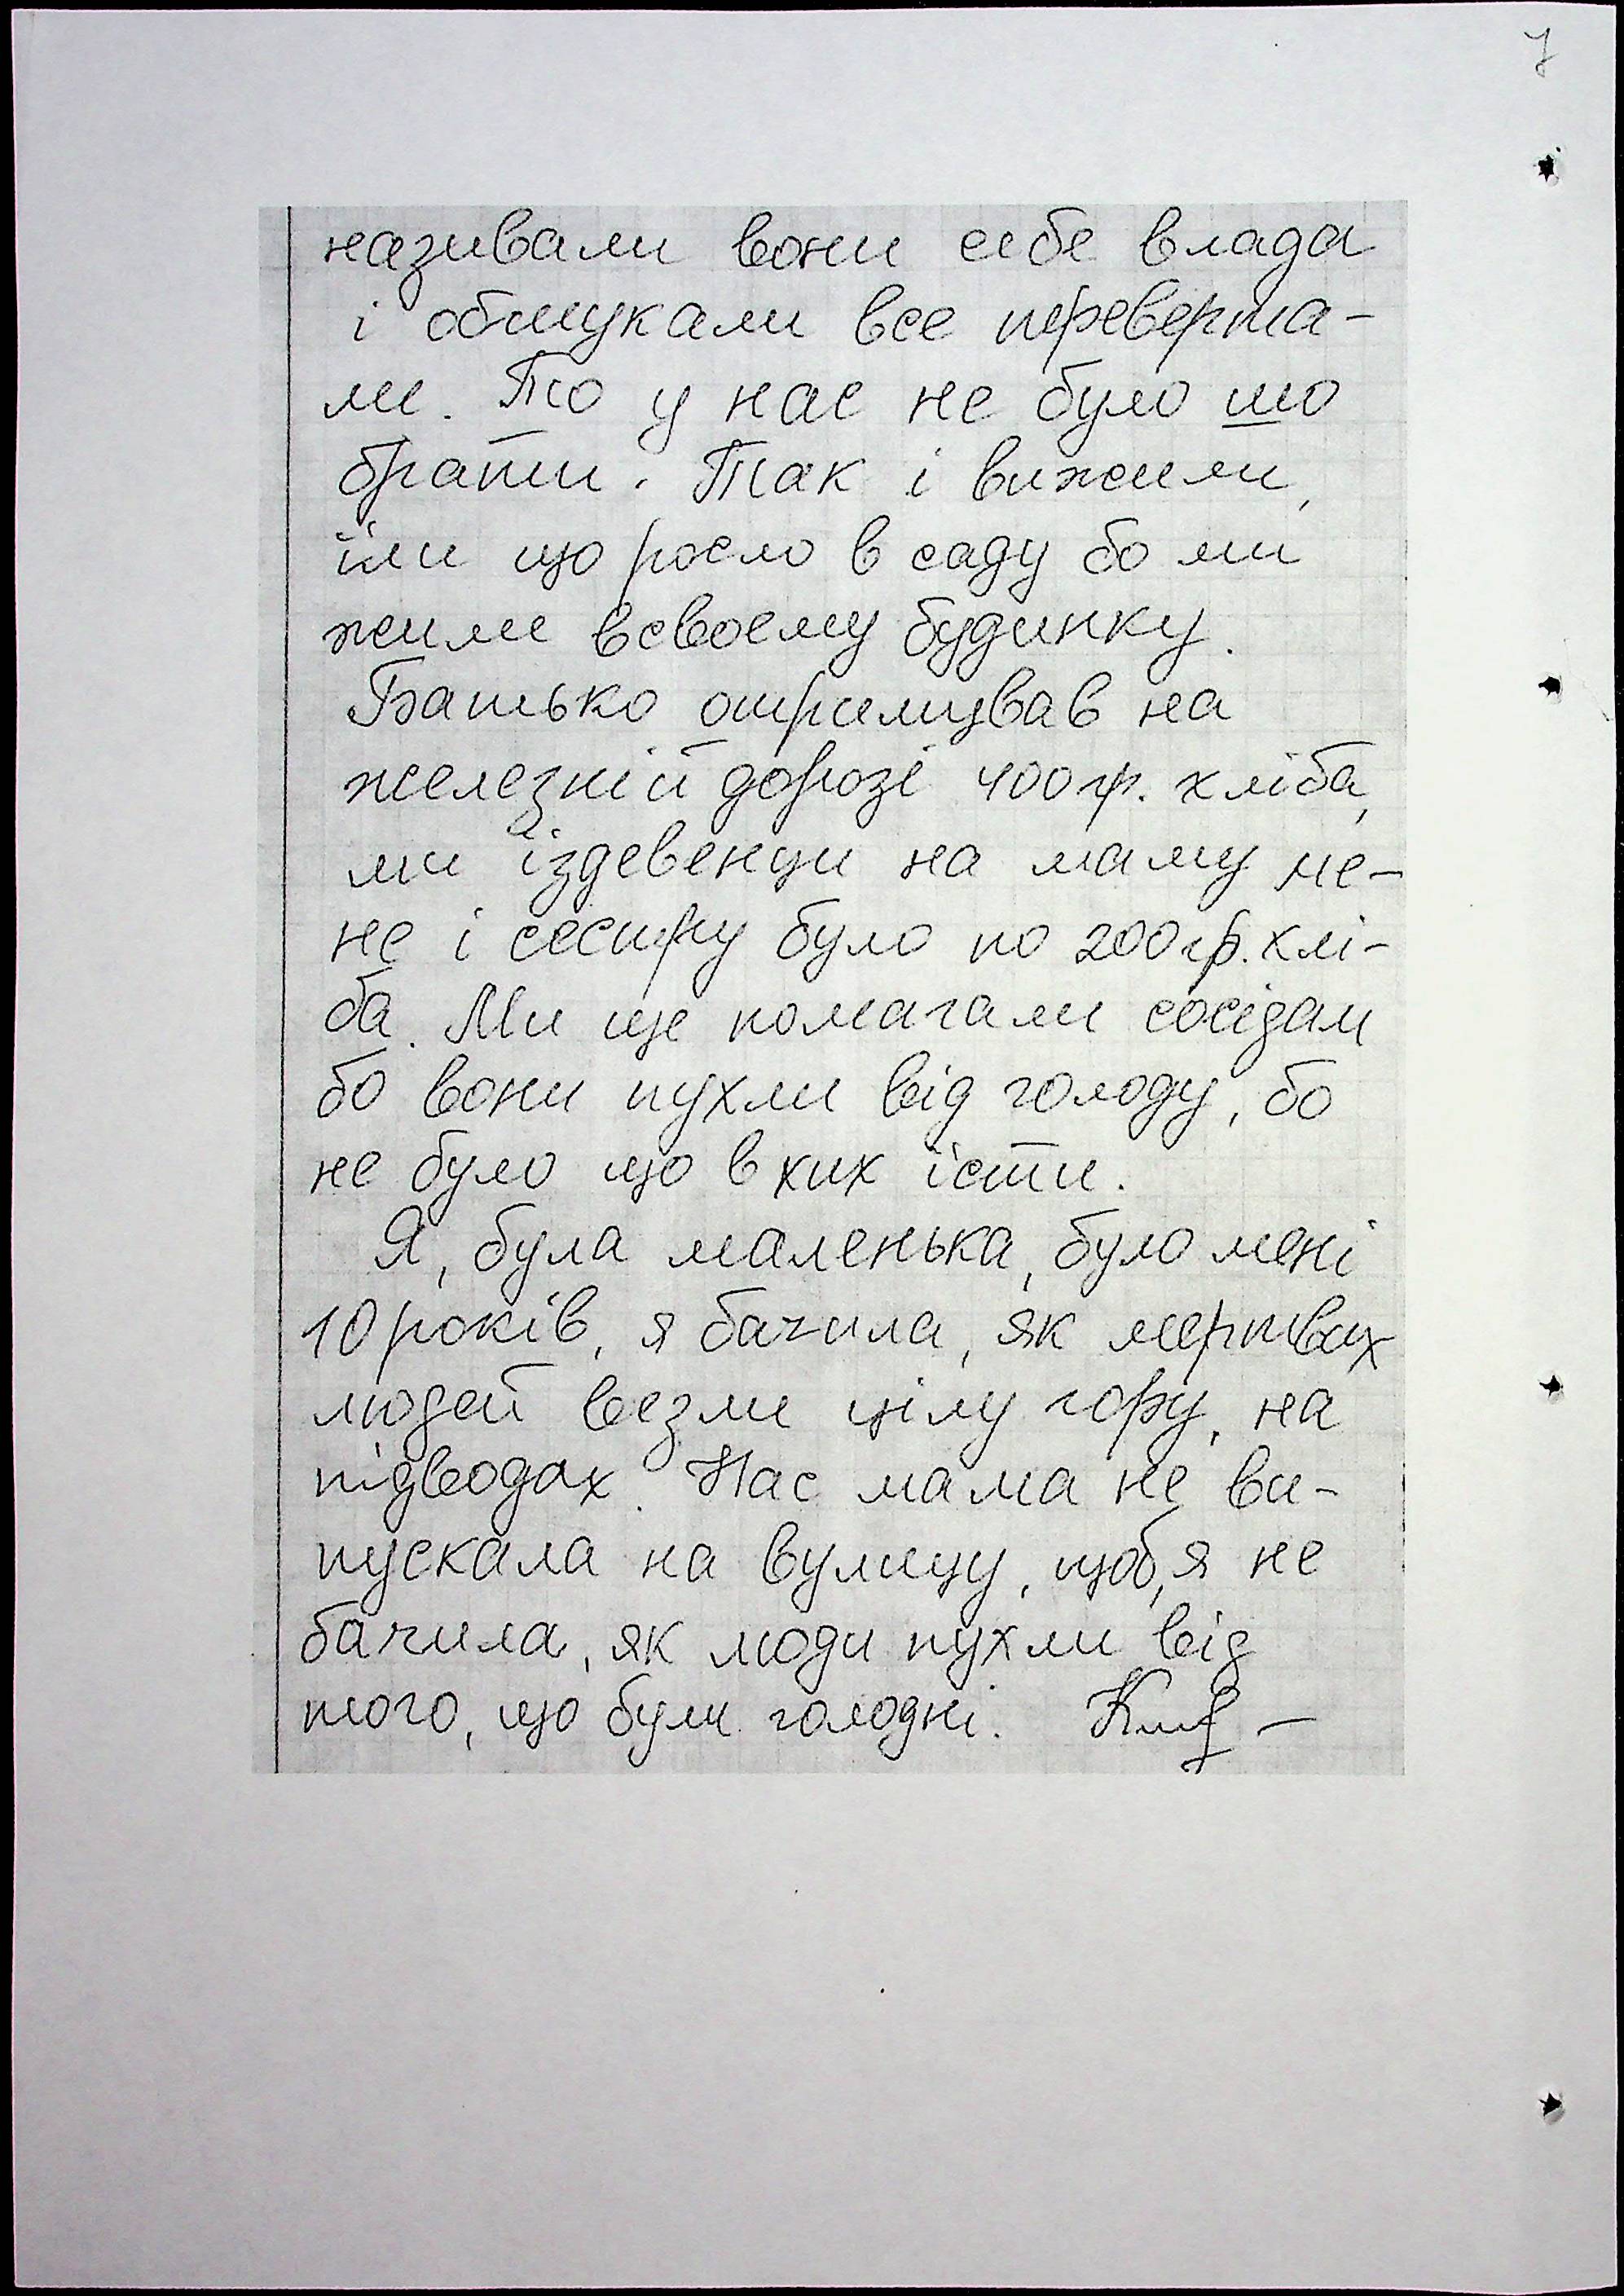 7
називали вони себе влада
і обшукали все переверта-
ли. То у нас не було шо
брати. Так і вижили,
їли що росло в саду бо ми
жили всвоєму будинку.
Батько отримував на
железній дорозі 400 гр. хліба,
ми іздевенци на маму ме-
не і сестру було по 200 гр. хлі-
ба. Ми ще помагали сосідам
бо вони пухли від голоду, бо
не було що в них їсти.
Я, була маленька, було мені
10 років, я бачила, як мертвих
людей везли цілу гору, на
підводах. Нас мама не ви-
пускала на вулицу, щоб, я не
бачила, як люди пухли від
того, що були голодні.